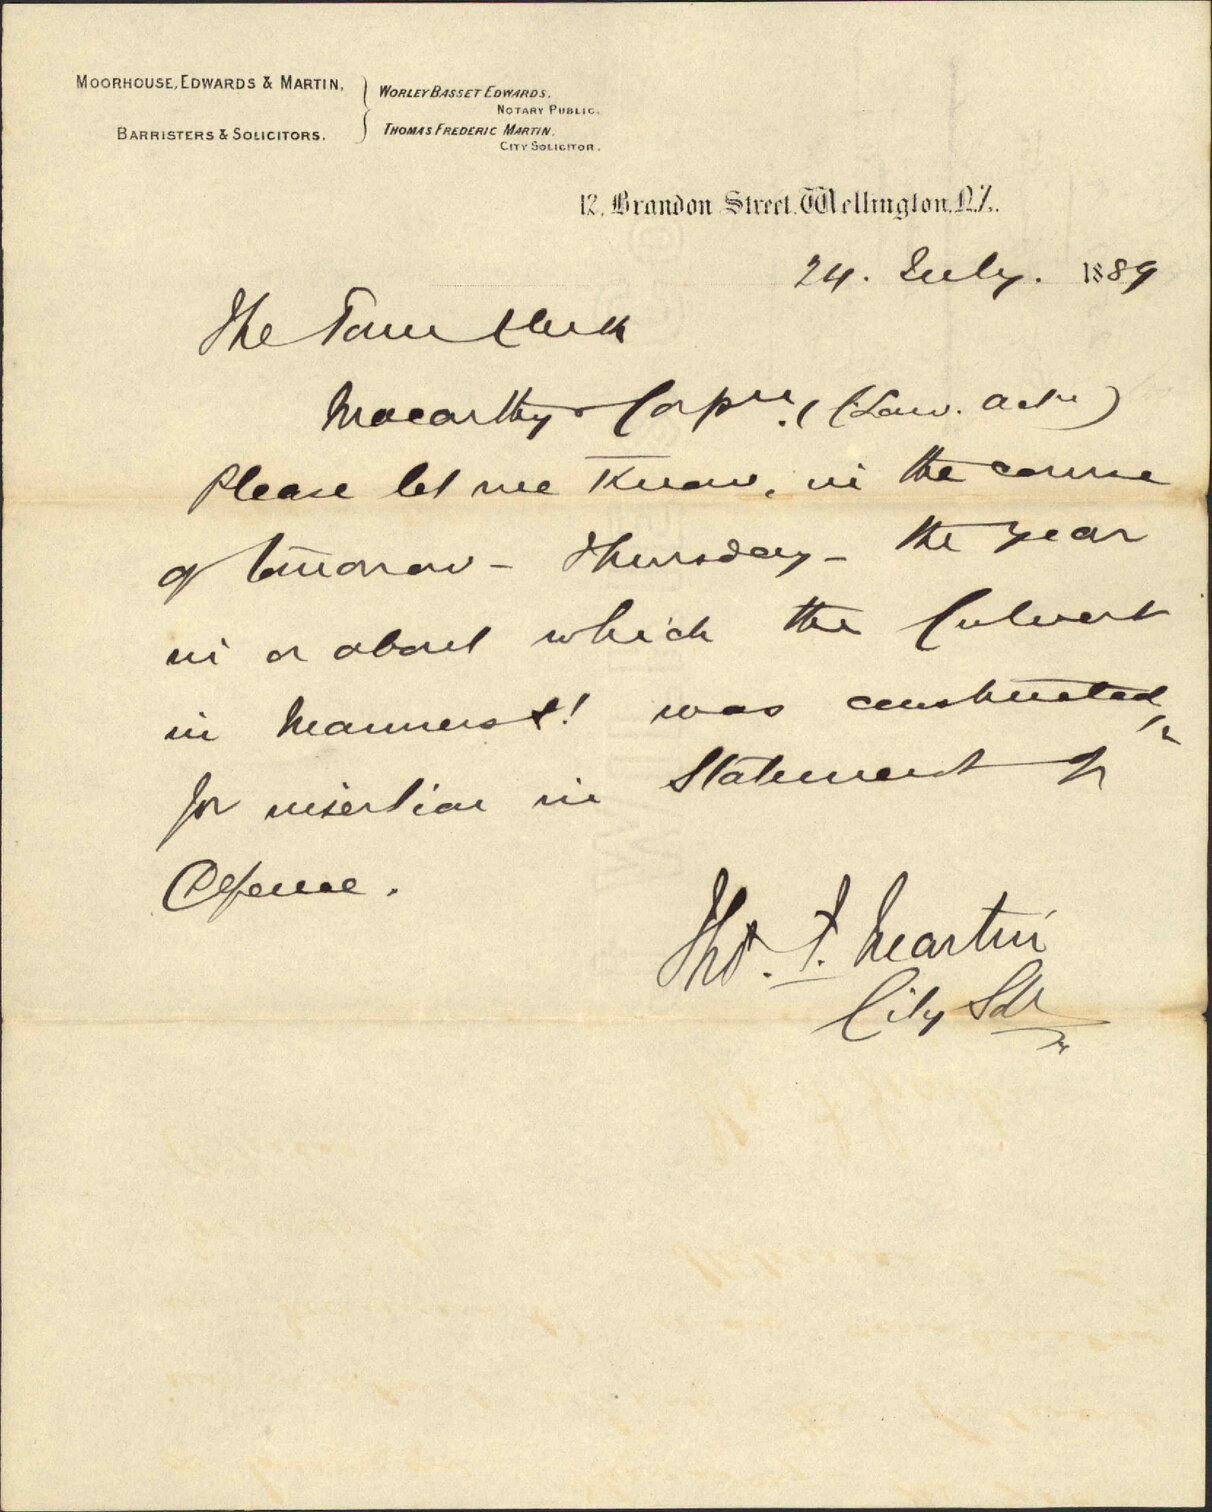 MOORHOUSE, EDWARDS & MARTIN,
BARRISTERS & SOLICITORS.
WORLEY BASSET EDWARDS,
NOTARY PUBLIC.
THOMAS FREDERIC MARTIN,
CITY SOLICITOR.
12, Brandon Street, Wellington, N.Z.
24. July. 1889
The Town Clerk
Macarthy v Corpn. (Law. actn)
Please let me know, in the course
of tomorrow - Thursday - the year
in or about which the Culvert
in Manners St! was constructed,
for insertion in Statement of
Defence.
Thos. F. Martin
City Solr